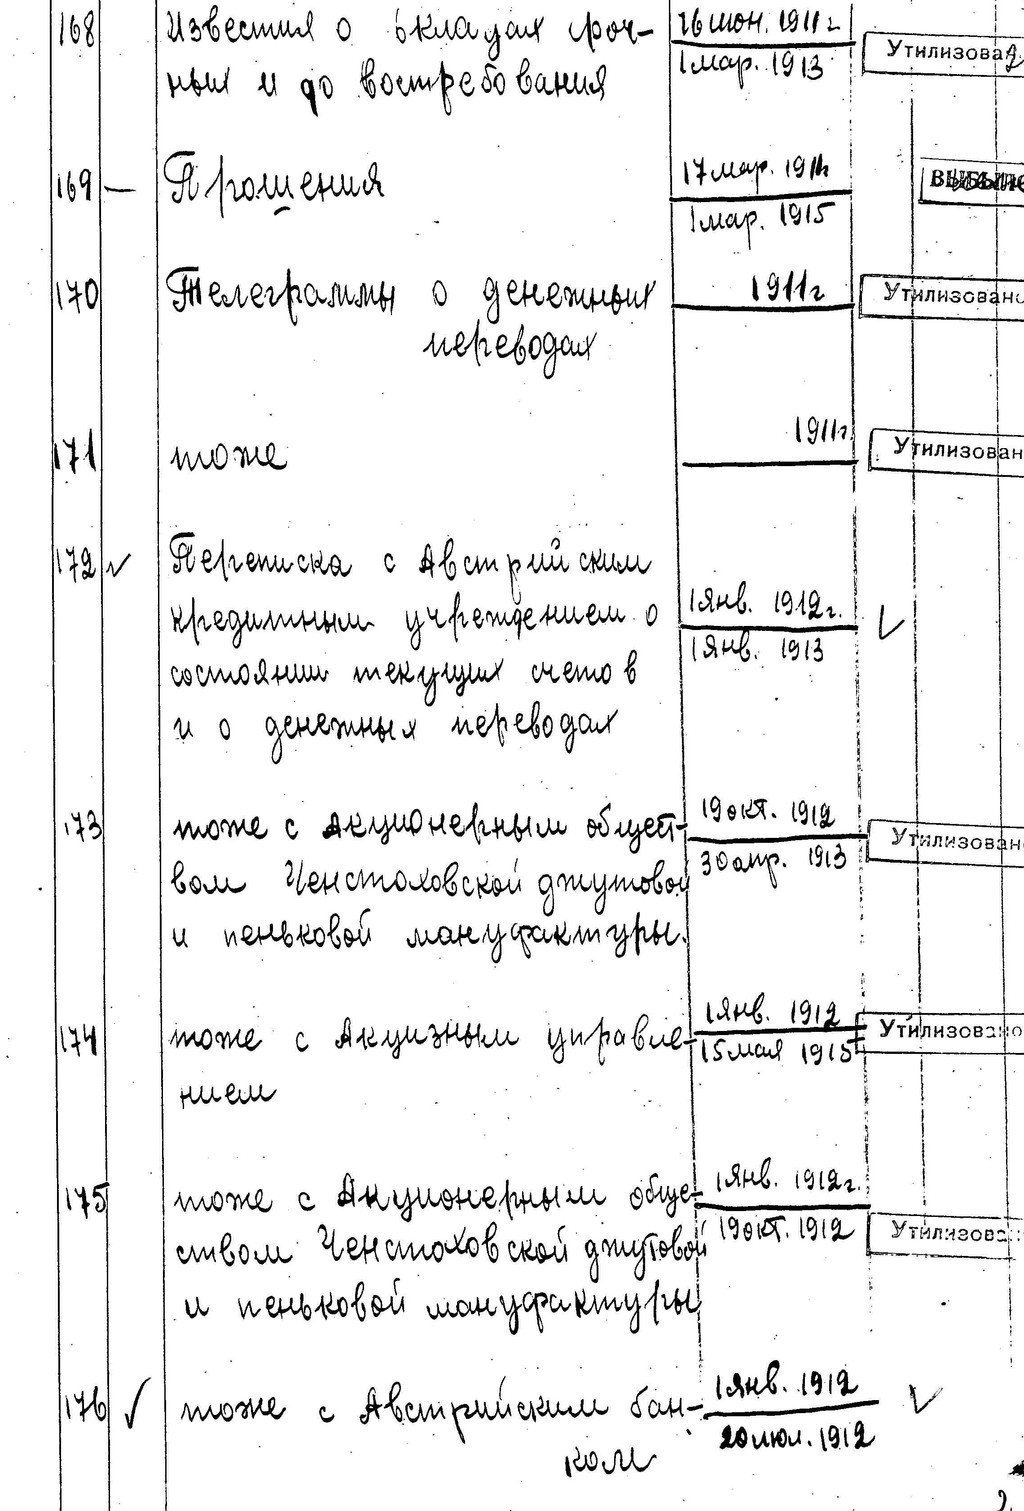 168 Известия о вкладах сроч- 26 июн. 1911 г
ных и до востребования 1 мар. 1913 Утилизова
169 — Прошения 17 мар. 1911
1 мар. 1915
170 Телеграммы о денежных 1911 г Утилизовано
переводах
171 тоже 1911 г. Утилизован
172 ✓ Переписка с Австрийским
кредитным учреждением о 1 янв. 1912 г. ✓
состоянии текущих счетов 1 янв. 1913
и о денежных переводах
173 тоже с Акционерным общест- 19 окт. 1912 Утилизовано
вом Ченстоховской джутовой 30 апр. 1913
и пеньковой мануфактуры.
174 тоже с Акцизным управле- 1 янв. 1912 Утилизовано
нием 15 мая 1915
175 тоже с Акционерным обще- 1 янв. 1912 г.
ством Ченстоховской джутовой 19 окт. 1912 Утилизова
и пеньковой мануфактуры
176 ✓ тоже с Австрийским бан- 1 янв. 1912 ✓
ком 20 июл. 1912